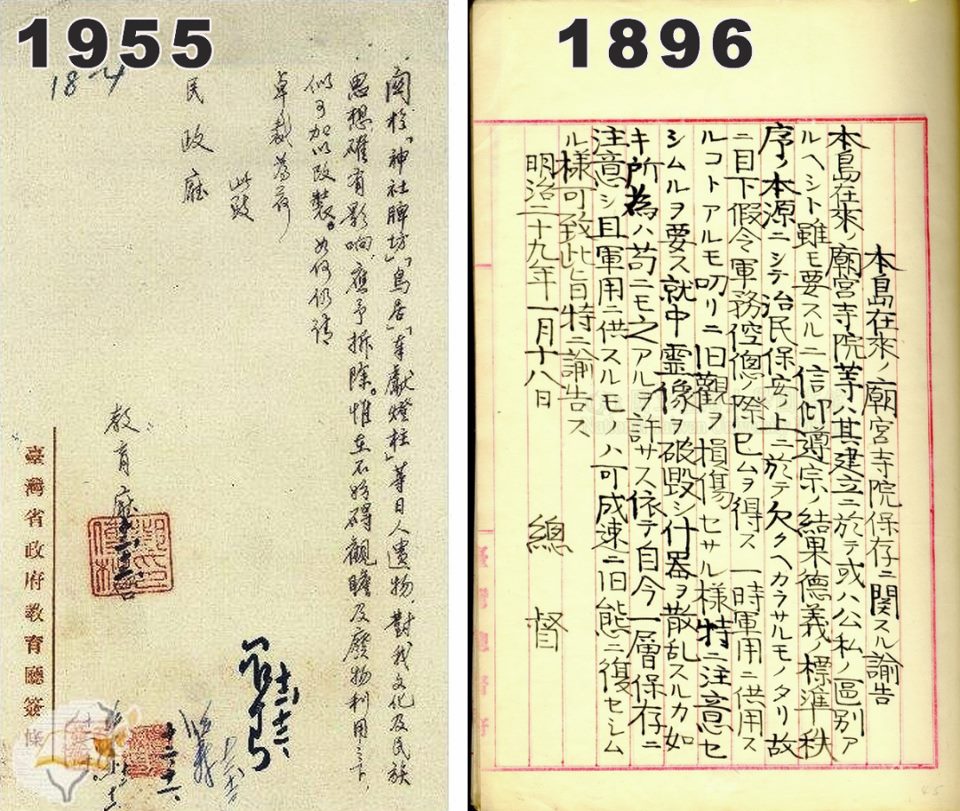 1955
18-4
關於「神社牌坊」「鳥居」「奉獻燈柱」等日人遺物,對我文化及民族
思想確有影响,應予拆除。惟在不妨碍觀瞻及廢物利用之下,
似可加以改裝。如何仍請
卓裁為荷
此致
民政廳
教育廳
臺灣省政府教育廳簽條
1896
本島在來ノ廟宮寺院保存ニ関スル諭告
本島在來ノ廟宮寺院等ハ其建立ニ於テ或ハ公私ノ區別ア
ルヘシト雖モ要スルニ信仰遵宗ノ結果德義ノ標準秩
序ノ本源ニシテ治民保安ノ上ニ於テ欠クヘカラサルモノタリ故
ニ目下假令軍務倥偬ノ際已ムヲ得ス一時軍用ニ供用ス
ルコトアルモ叨リニ旧觀ヲ損傷セサル様特ニ注意セ
シムルヲ要ス就中霊像ヲ破毀シ什器ヲ散乱スルカ如
キ所為ハ苟ニモ之アルヲ許サス依テ自今一層保存ニ
注意シ且軍用ニ供スルモノハ可成速ニ旧態ニ復セシム
ル様可致此旨特ニ諭告ス
明治二十九年一月十八日 總督